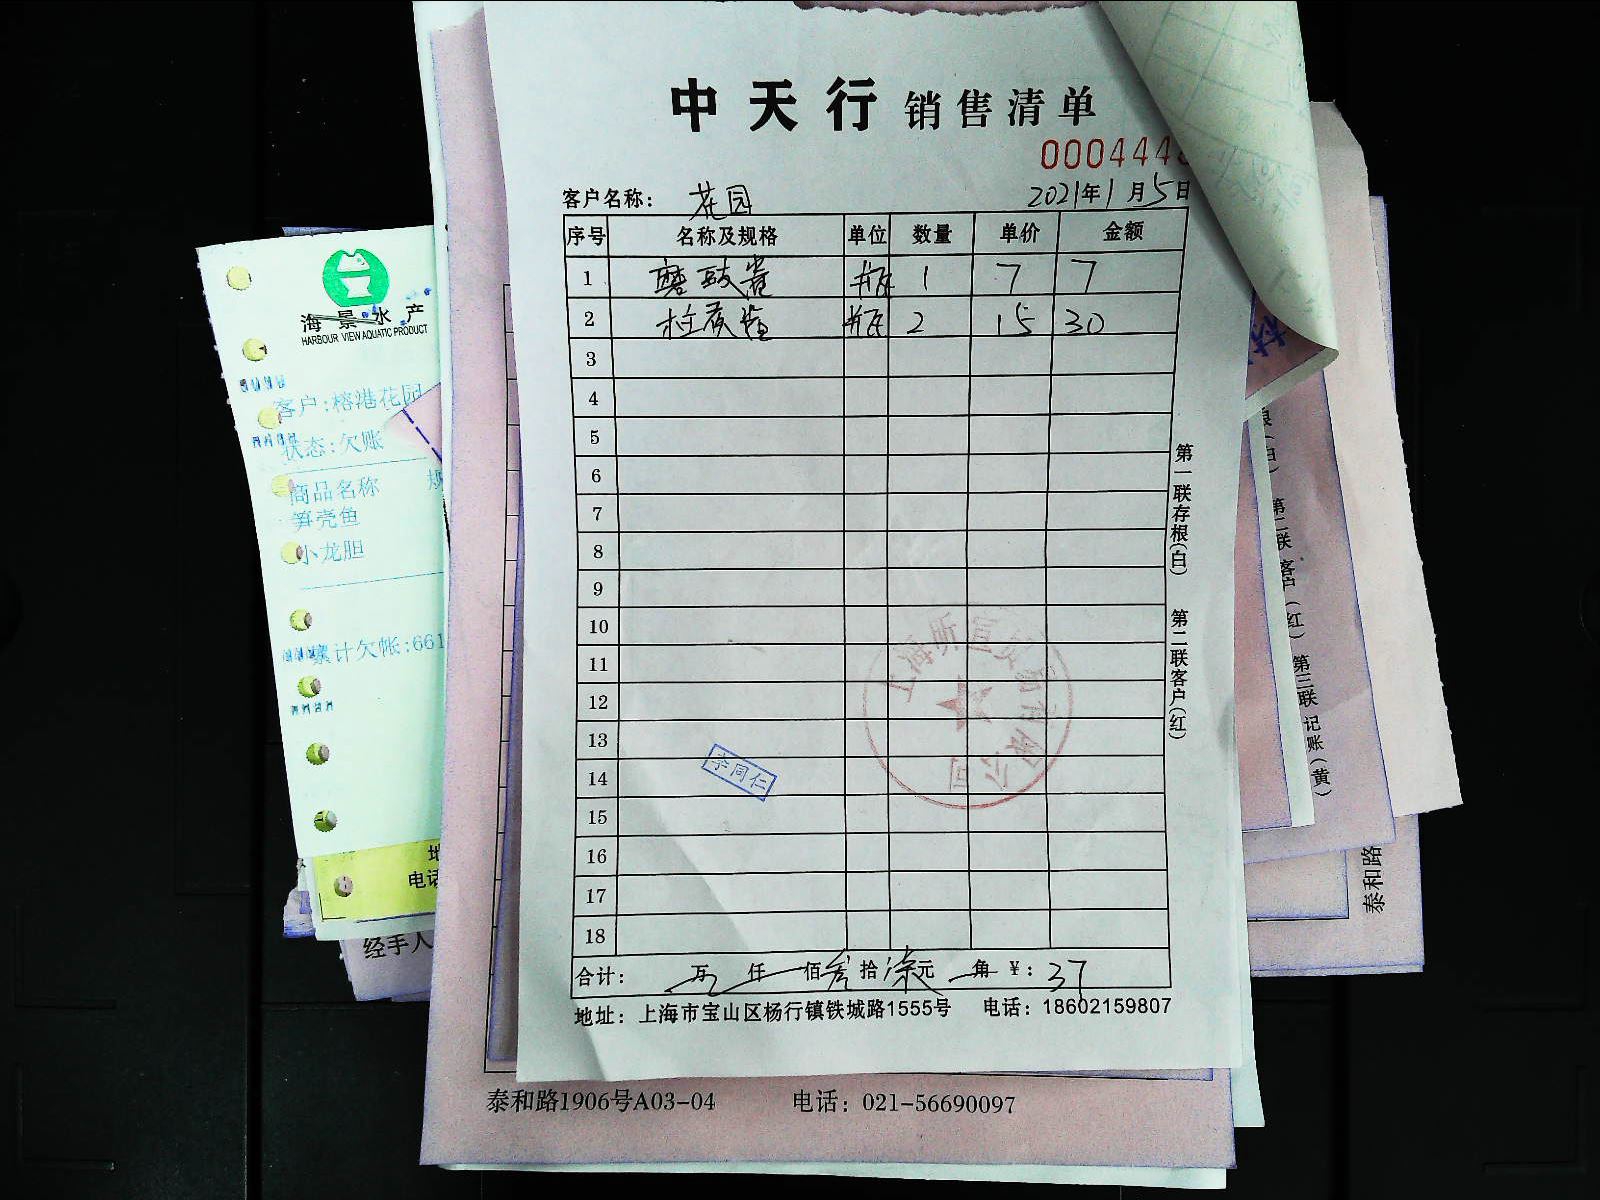 中天行 销售清单
000444
客户名称： 花园 2021年1月5日
序号 名称及规格 单位 数量 单价 金额
1 磨豉酱 瓶 1 7 7
2 柱侯酱 瓶 2 15 30
3
4
5
6
7
8
9
10
11
12
13
14
15
16
17
18
合计： 万 仟 佰 叁拾柒元 角 ￥：37
地址：上海市宝山区杨行镇铁城路1555号 电话：18602159807
第一联存根(白) 第二联客户(红)
李同仁
泰和路1906号A03-04 电话：021-56690097
海景水产
HARBOUR VIEW AQUATIC PRODUCT
客户:榕港花园
状态:欠账
商品名称 规
笋壳鱼
小龙胆
累计欠帐:661
地
电话
经手人
(白) 第二联客户(红) 第三联记账(黄)
泰和路